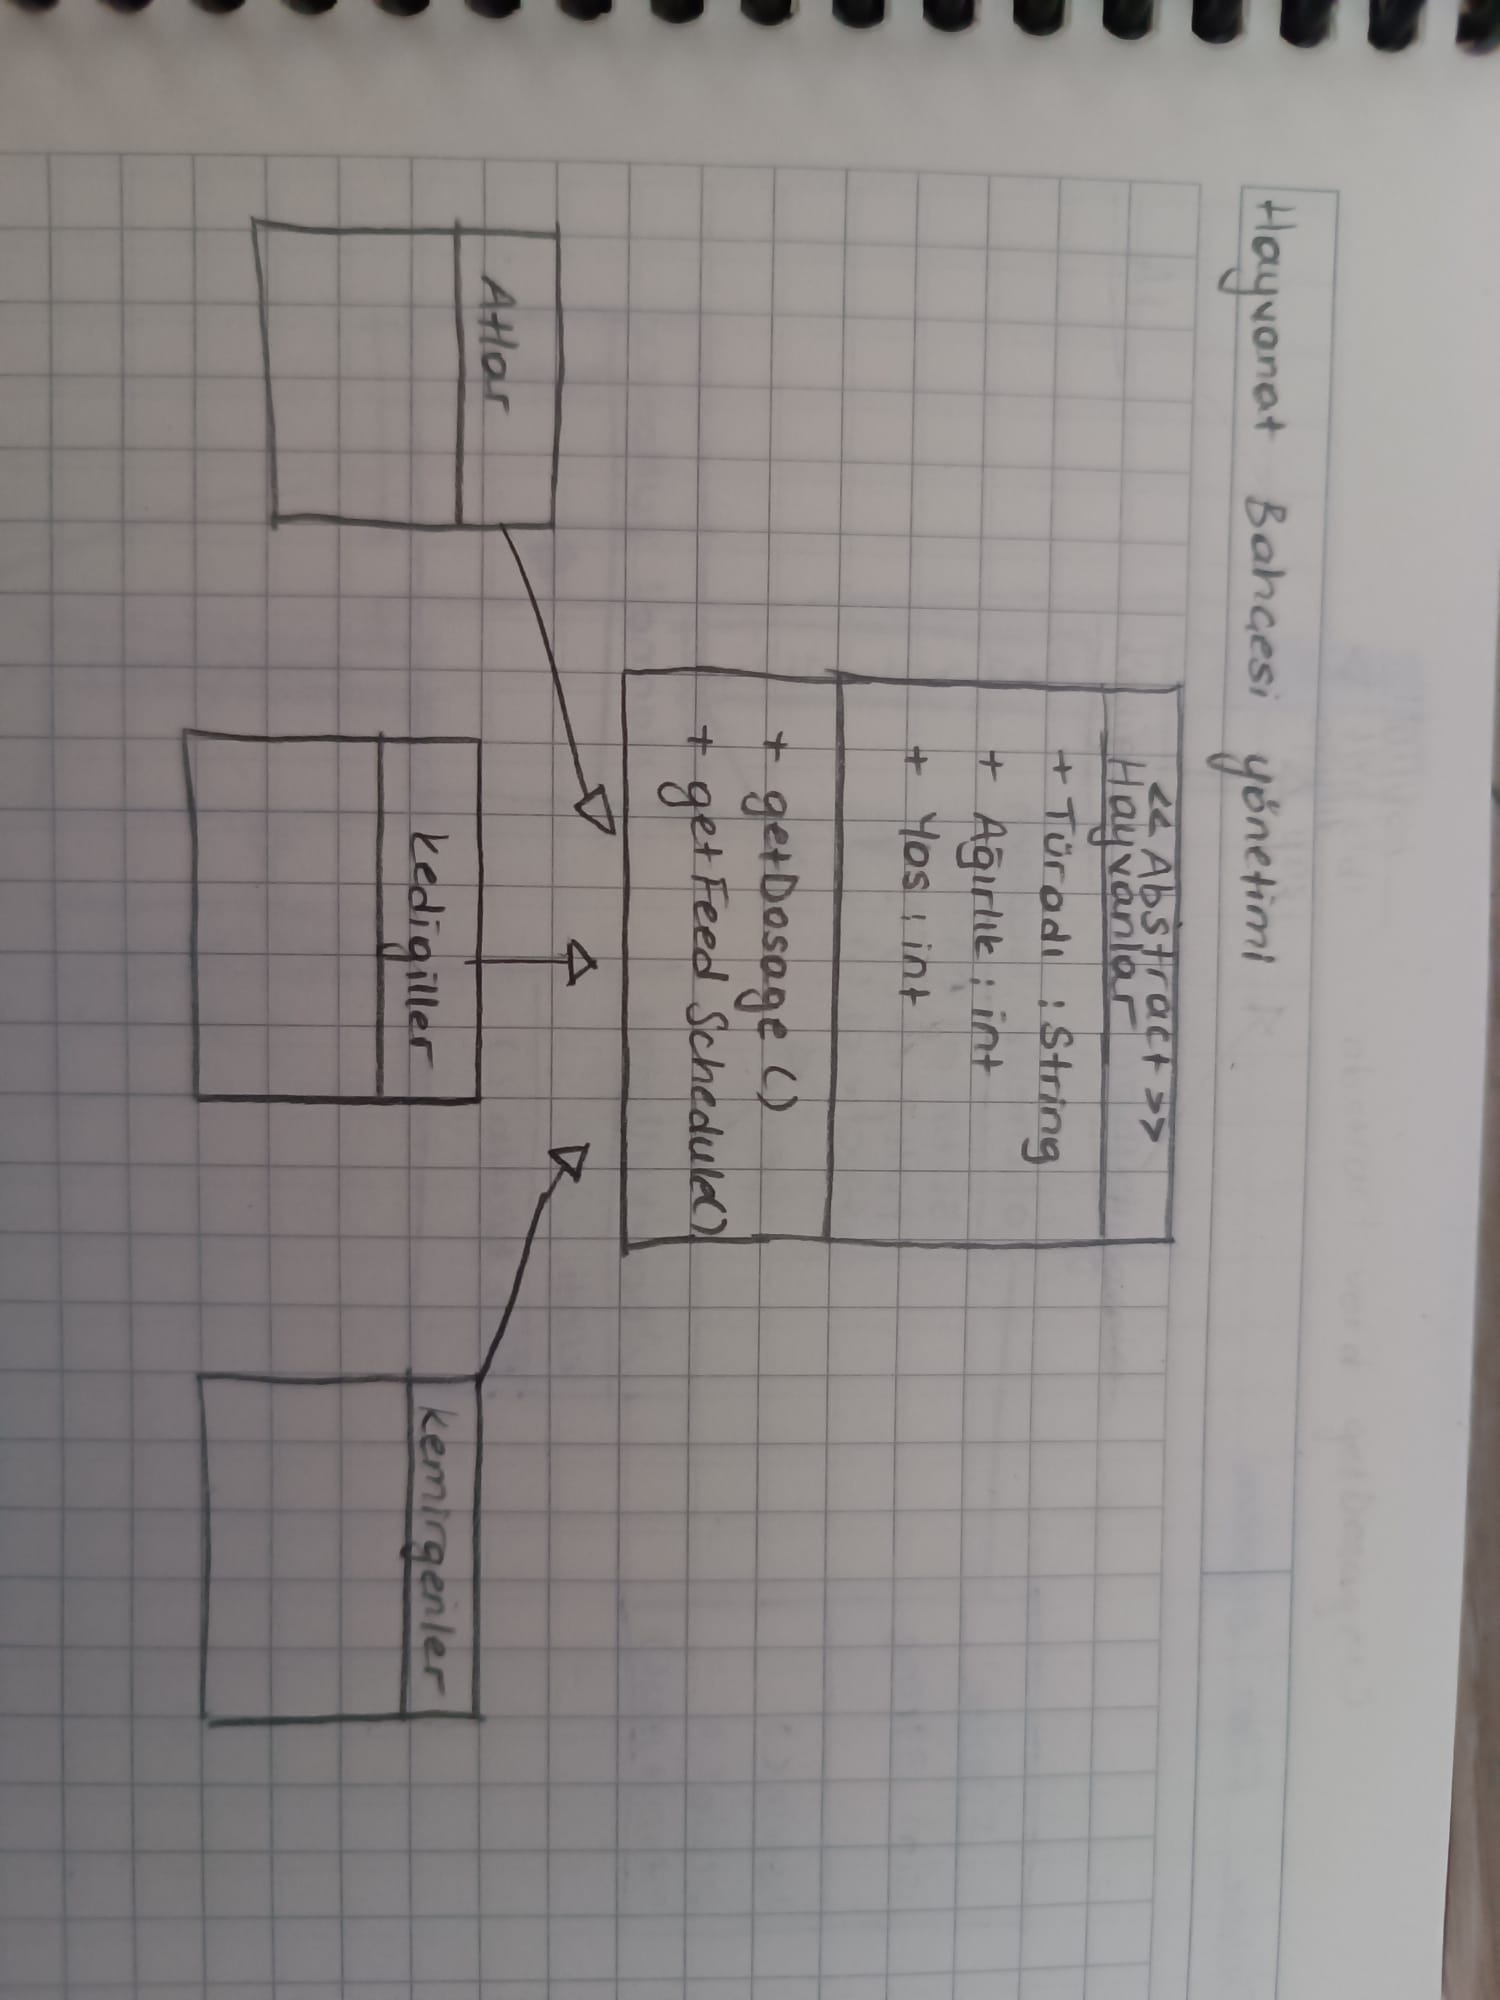 Hayvanat Bahçesi yönetimi
<< Abstract >>
Hayvanlar
+ Türadı : String
+ Ağırlık : int
+ Yas : int
+ getDosage ()
+ getFeed Schedule()
Atlar
kedigiller
kemirgenler